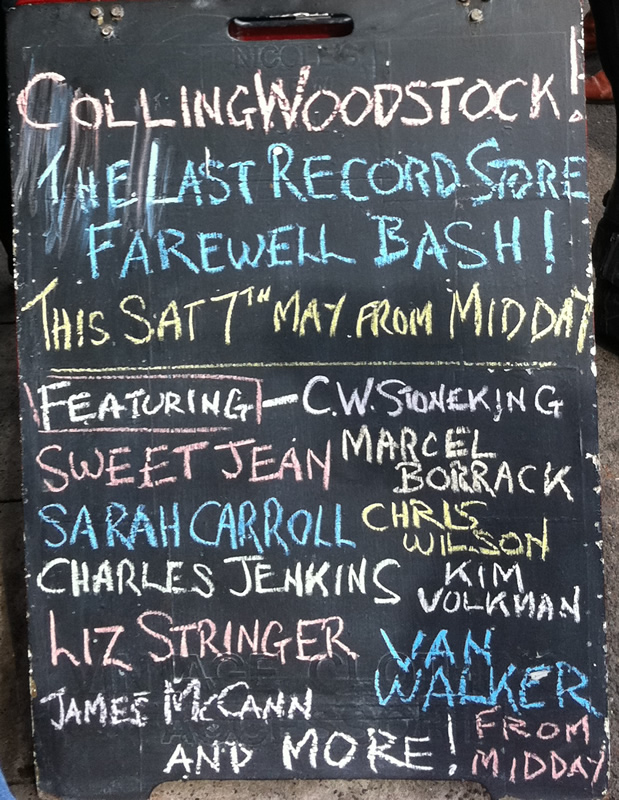 COLLINGWOODSTOCK!
THE LAST RECORD STORE
FAREWELL BASH!
THIS SAT 7TH MAY FROM MIDDAY
FEATURING - C.W. STONEKING
SWEET JEAN
MARCEL
BORRACK
SARAH CARROLL
CHRIS
WILSON
CHARLES JENKINS
KIM
VOLKMAN
LIZ STRINGER
VAN
WALKER
JAMES McCANN
AND MORE!
FROM
MIDDAY